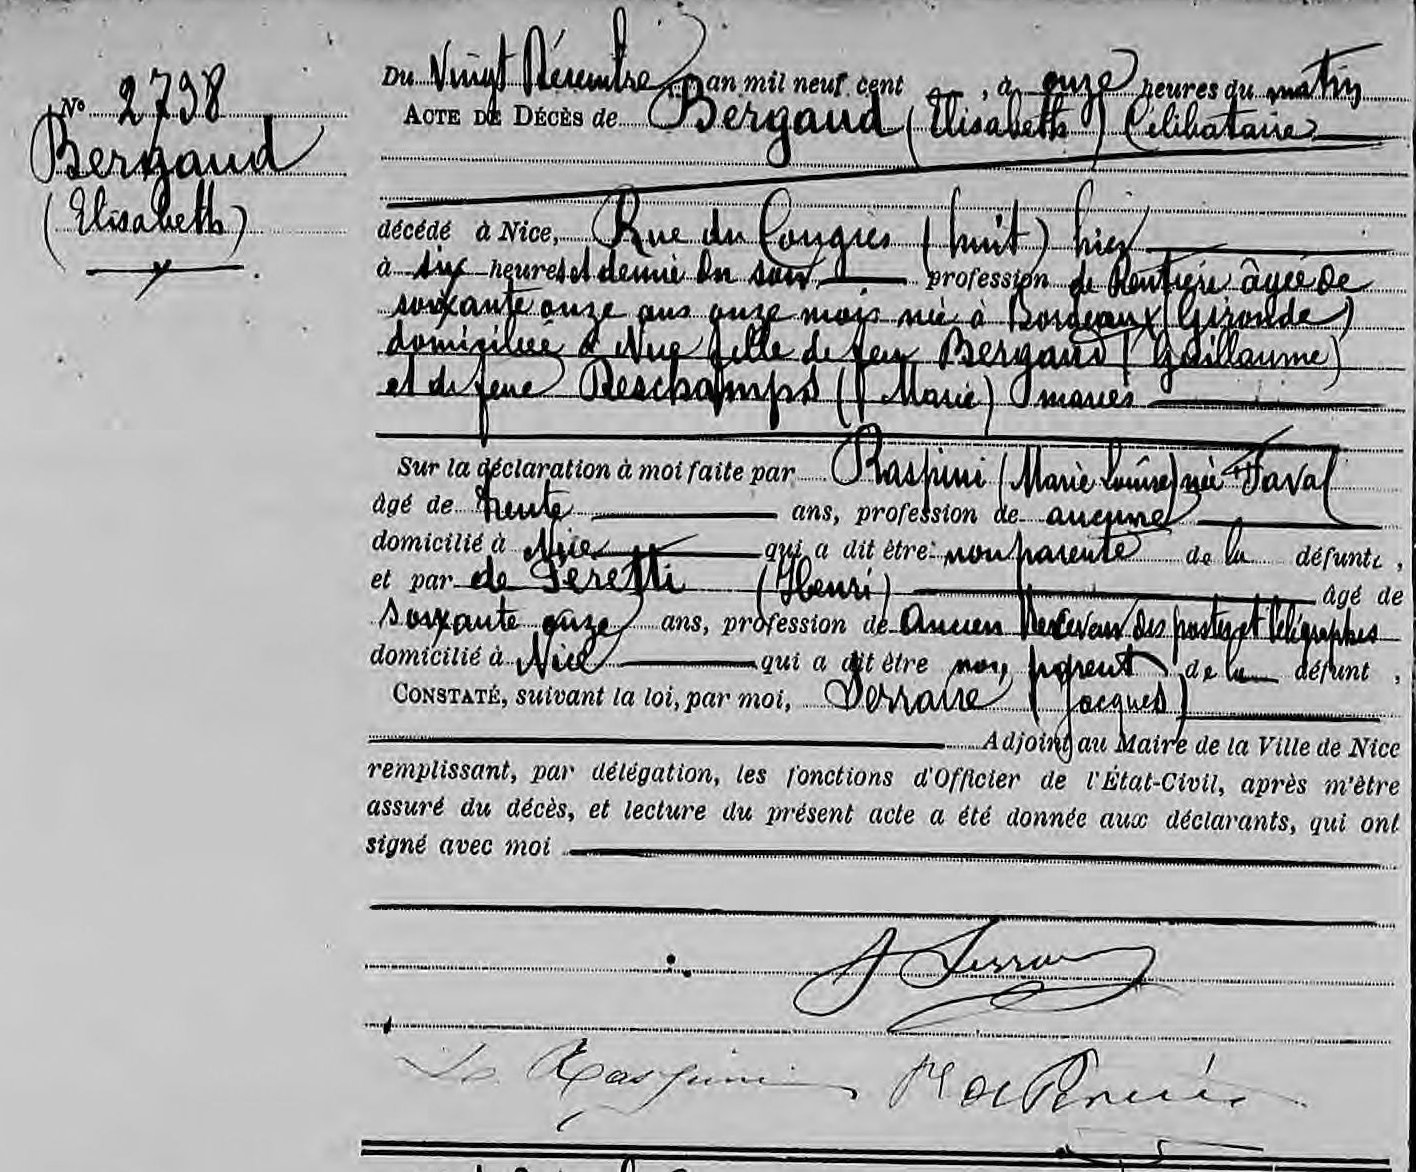 No 2798
Bergaud
(Elisabeth)
Du Vingt Décembre an mil neuf cent __, à onze heures du matin
ACTE DE DÉCÈS de Bergaud (Elisabeth) Célibataire
décédé à Nice, Rue du Congrès (huit) hier
à six heures et demie du soir profession de Rentière âgée de
soixante onze ans onze mois née à Bordeaux (Gironde)
domiciliée à Nice fille de feu Bergaud (Guillaume)
et de feue Deschamps (Marie) mariés
Sur la déclaration à moi faite par Raspini (Marie Louise) née Faval
âgé de trente ans, profession de aucune
domicilié à Nice qui a dit être non parente de la défunte,
et par de Peretti (Henri) âgé de
soixante onze ans, profession de Ancien Receveur des postes et télégraphes
domicilié à Nice qui a dit être non parent de la défunt,
CONSTATÉ, suivant la loi, par moi, Serraire (Jacques)
Adjoint au Maire de la Ville de Nice
remplissant, par délégation, les fonctions d'Officier de l'État-Civil, après m'être
assuré du décès, et lecture du présent acte a été donnée aux déclarants, qui ont
signé avec moi
Raspini